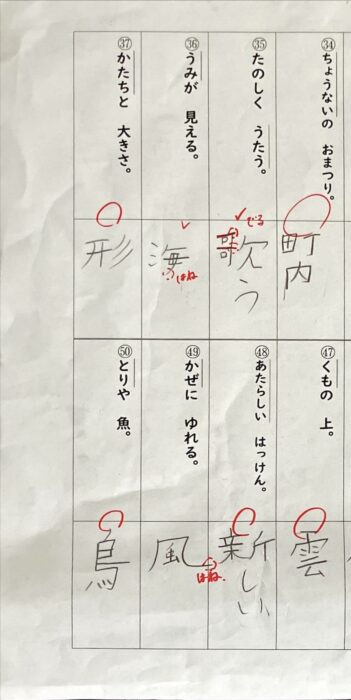 ㉞ ちょうないの おまつり。
町内
㉟ たのしく うたう。
でる
歌う
㊱ うみが 見える。
海
はね
㊲ かたちと 大きさ。
形
㊼ くもの 上。
雲
㊽ あたらしい はっけん。
新しい
㊾ かぜに ゆれる。
風
はね.
㊿ とりや 魚。
鳥